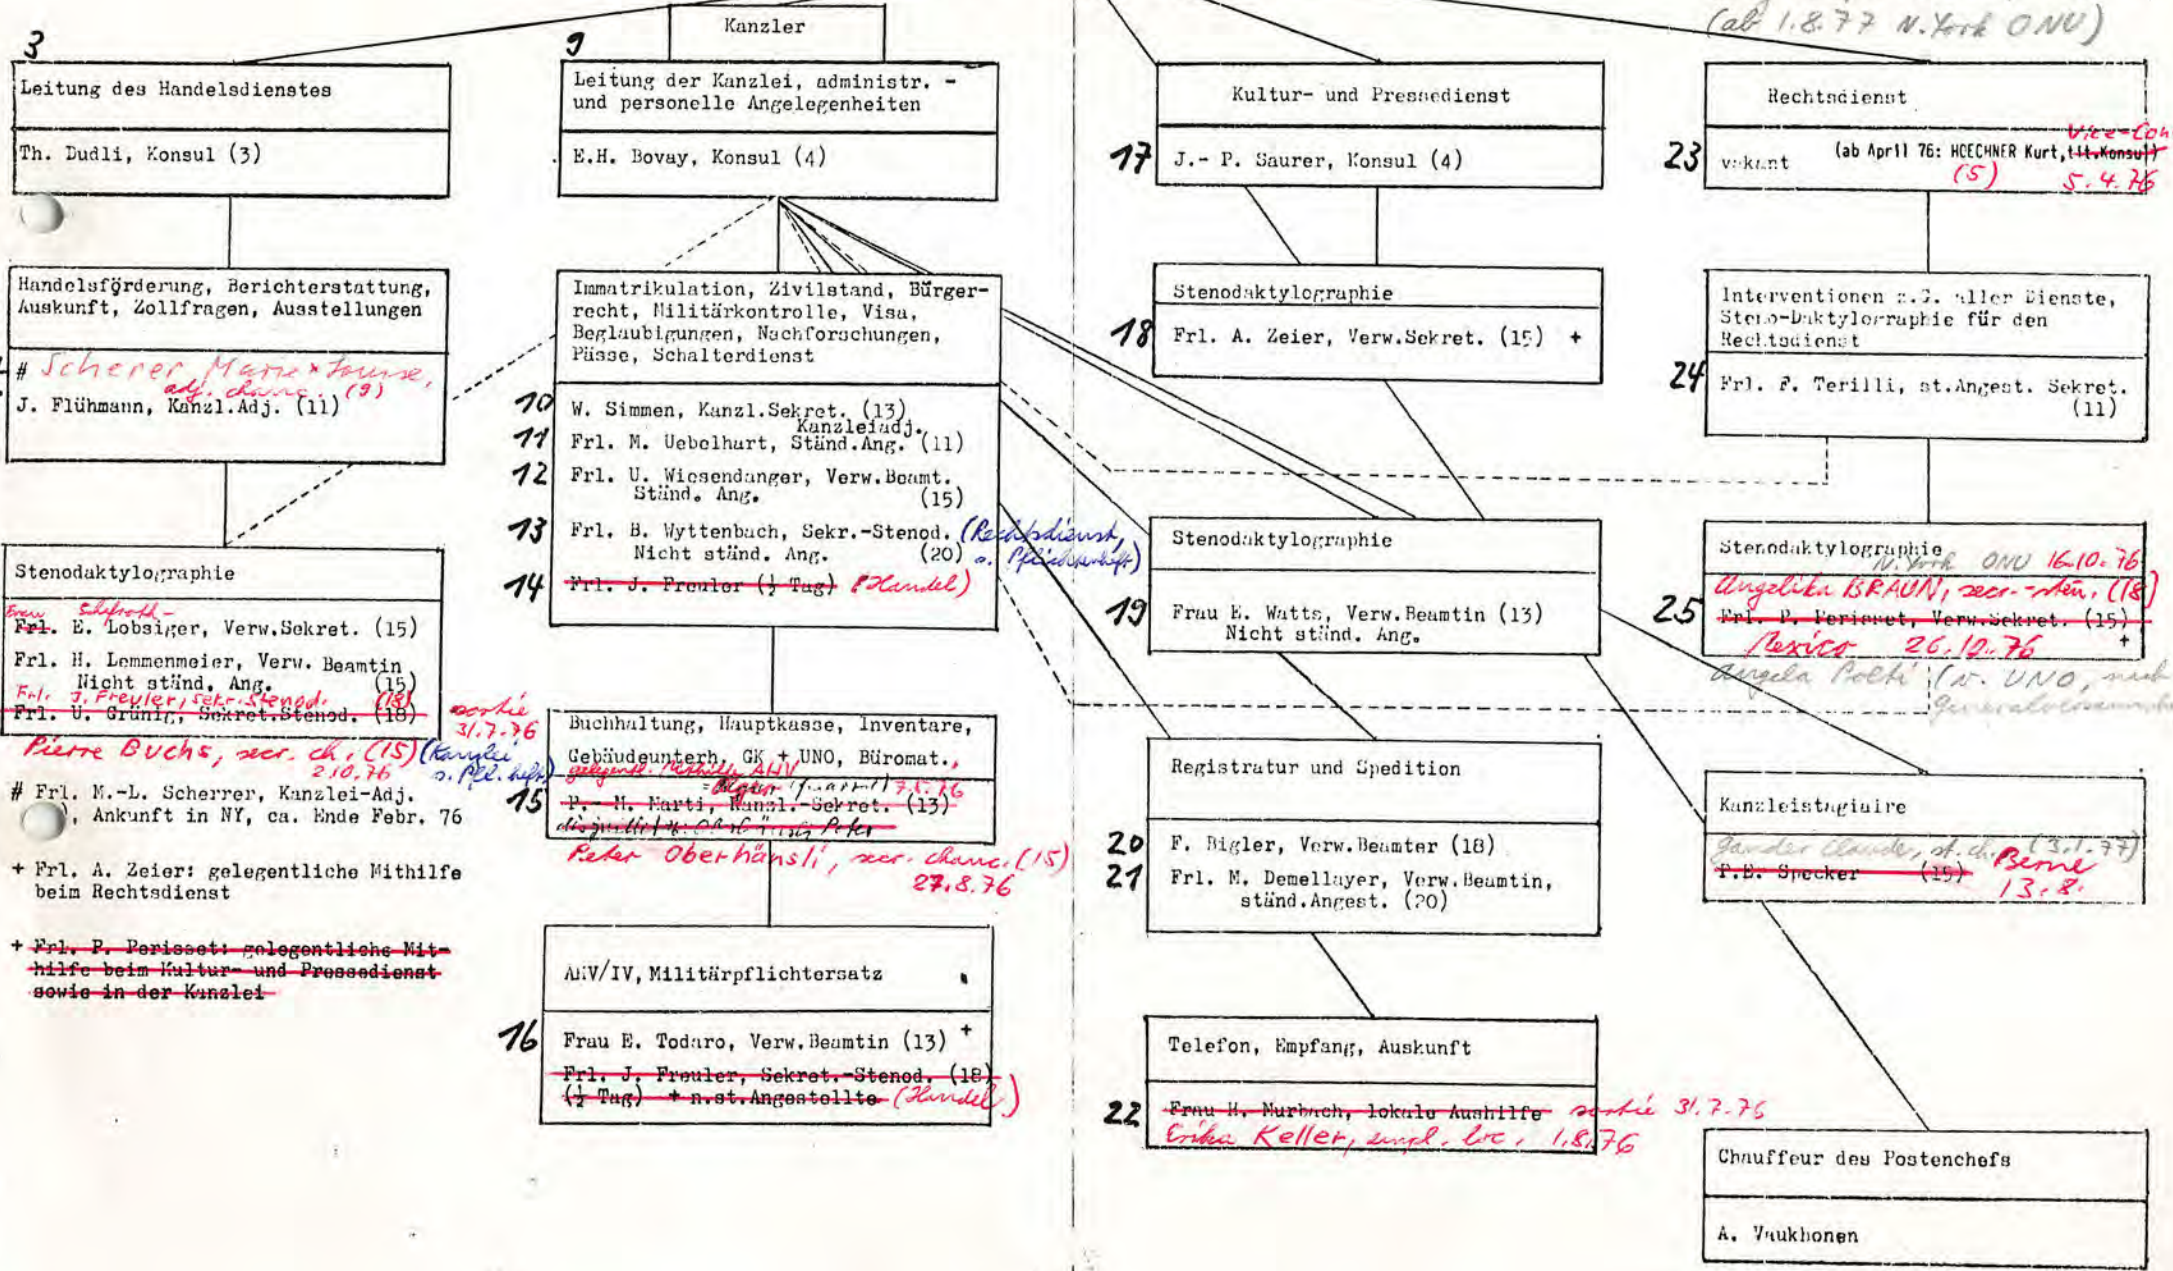 (ab 1.8.77 N.York ONU)
Kanzler
3
Leitung des Handelsdienstes
Th. Dudli, Konsul (3)
Handelsförderung, Berichterstattung,
Auskunft, Zollfragen, Ausstellungen
# Scherer, Marie-Louise,
adj. chanc. (9)
J. Flühmann, Kanzl.Adj. (11)
Stenodaktylographie
Frau
Frl. E. Lobsiger, Verw.Sekret. (15)
Frl. H. Lemmenmeier, Verw. Beamtin
Nicht ständ. Ang. (15)
Frl. J. Freuler, Sekr. Stenod. (18)
Frl. U. Grünig, Sekret.Stenod. (18)
sortie
31.7.76
Pierre Buchs, secr. ch. (15) (Kanzlei
2.10.76 s. Pfl. heft)
# Frl. M.-L. Scherrer, Kanzlei-Adj.
), Ankunft in NY, ca. Ende Febr. 76
+ Frl. A. Zeier: gelegentliche Mithilfe
beim Rechtsdienst
+ Frl. P. Perisset: gelegentliche Mit-
hilfe beim Kultur- und Pressedienst
sowie in der Kanzlei
9
Leitung der Kanzlei, administr. -
und personelle Angelegenheiten
E.H. Bovay, Konsul (4)
Immatrikulation, Zivilstand, Bürger-
recht, Militärkontrolle, Visa,
Beglaubigungen, Nachforschungen,
Pässe, Schalterdienst
10 W. Simmen, Kanzl.Sekret. (13)
Kanzleiadj.
11 Frl. M. Uebelhart, Ständ.Ang. (11)
12 Frl. U. Wiesendanger, Verw.Beamt.
Ständ. Ang. (15)
13 Frl. B. Wyttenbach, Sekr.-Stenod. (Rechtsdienst,
Nicht ständ. Ang. (20) s. Pflichtenheft)
14 Frl. J. Freuler (½ Tag) (Handel)
Buchhaltung, Hauptkasse, Inventare,
Gebäudeunterh. GK + UNO, Büromat.,
gelegentl. Mithilfe AHV
7.5.76
15 P.- M. Marti, Kanzl.-Sekret. (13)
Peter Oberhänsli, secr. chanc. (15)
27.8.76
AHV/IV, Militärpflichtersatz
16 Frau E. Todaro, Verw.Beamtin (13) +
Frl. J. Freuler, Sekret.-Stenod. (18)
(½ Tag) + n.st.Angestellte (Handel)
Kultur- und Pressedienst
17 J.- P. Saurer, Konsul (4)
Stenodaktylographie
18 Frl. A. Zeier, Verw.Sekret. (15) +
Stenodaktylographie
19 Frau E. Watts, Verw.Beamtin (13)
Nicht ständ. Ang.
Registratur und Spedition
20 F. Bigler, Verw.Beamter (18)
21 Frl. M. Demellayer, Verw.Beamtin,
ständ.Angest. (20)
Telefon, Empfang, Auskunft
22 Frau H. Murbach, lokale Aushilfe sortie 31.7.76
Erika Keller, empl. loc. 1.8.76
Rechtsdienst
Vice-Con
23 vakant (ab April 76: HOECHNER Kurt, tit.Konsul)
(5) 5.4.76
Interventionen z.G. aller Dienste,
Steno-Daktylographie für den
Rechtsdienst
24 Frl. F. Terilli, st.Angest. Sekret.
(11)
Stenodaktylographie
N.York ONU 16.10.76
Angelika BRAUN, secr.-stén. (18)
25 Frl. P. Perisset, Verw.Sekret. (15)
Mexico 26.10.76 +
Angela Polti (v. UNO, nach
Kanzleistagiaire
Gander Claude, st. ch. (3.1.77)
P.E. Specker (15) Berne
13.8.
Chauffeur des Postenchefs
A. Vaukhonen